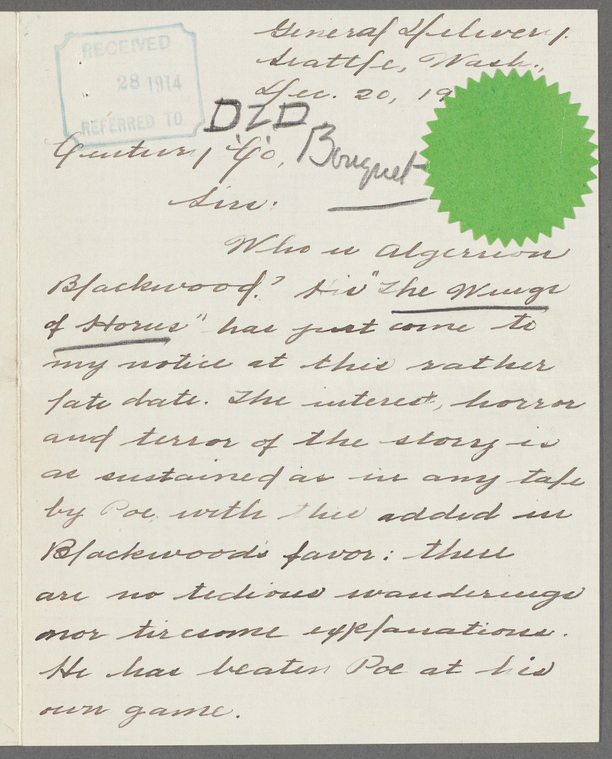 General Delivery.
Seattle, Wash.,
Dec. 20, 19
RECEIVED
28 1914
REFERRED TO
DID
Century Co,
Bouquet
Sirs:
Who is Algernon
Blackwood? His "The Wings
of Horus" has just come to
my notice at this rather
late date. The interest, horror
and terror of the story is
as sustained as in any tale
by Poe, with this added in
Blackwood's favor: there
are no tedious wanderings
nor tiresome explanations.
He has beaten Poe at his
own game.